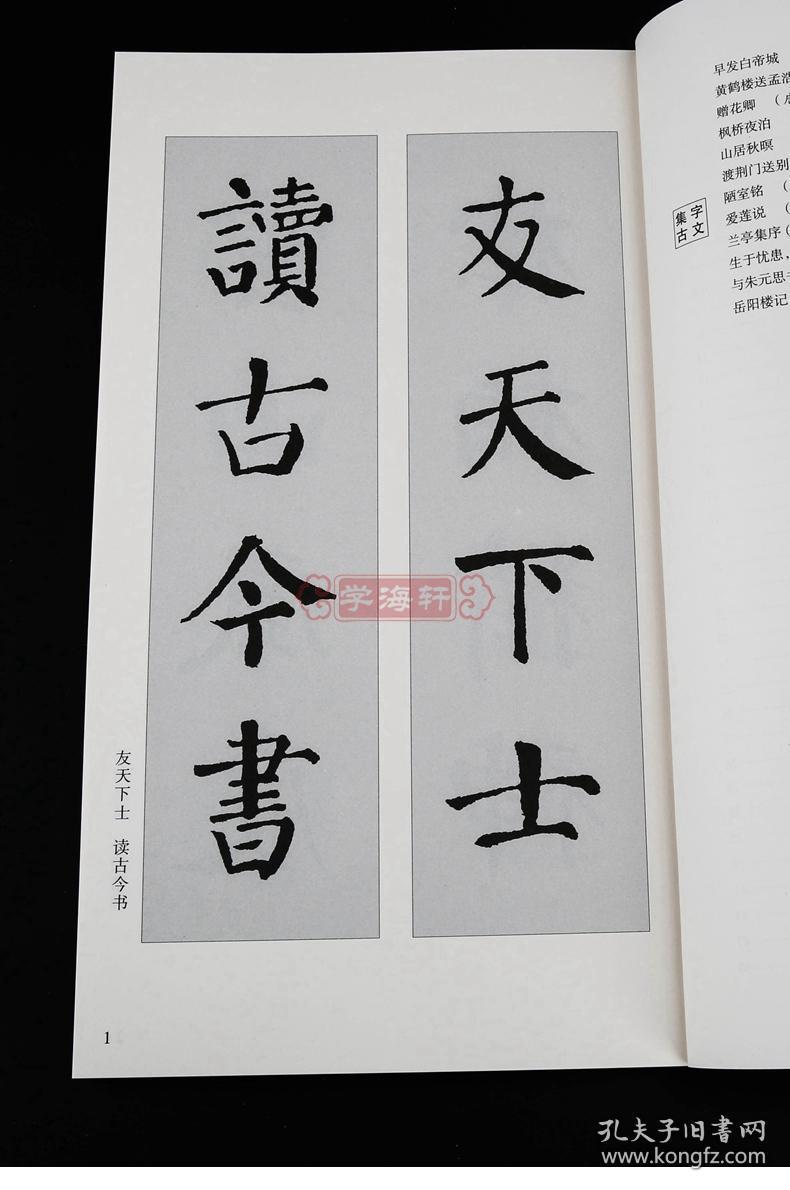 友天下士
讀古今書
友天下士 读古今书
1
集字古文
早发白帝城
黄鹤楼送孟浩
赠花卿 (
枫桥夜泊
山居秋暝
渡荆门送别
陋室铭 (
爱莲说 (
兰亭集序(
生于忧患，
与朱元思
岳阳楼记
学海轩
孔夫子旧书网
www.kongfz.com